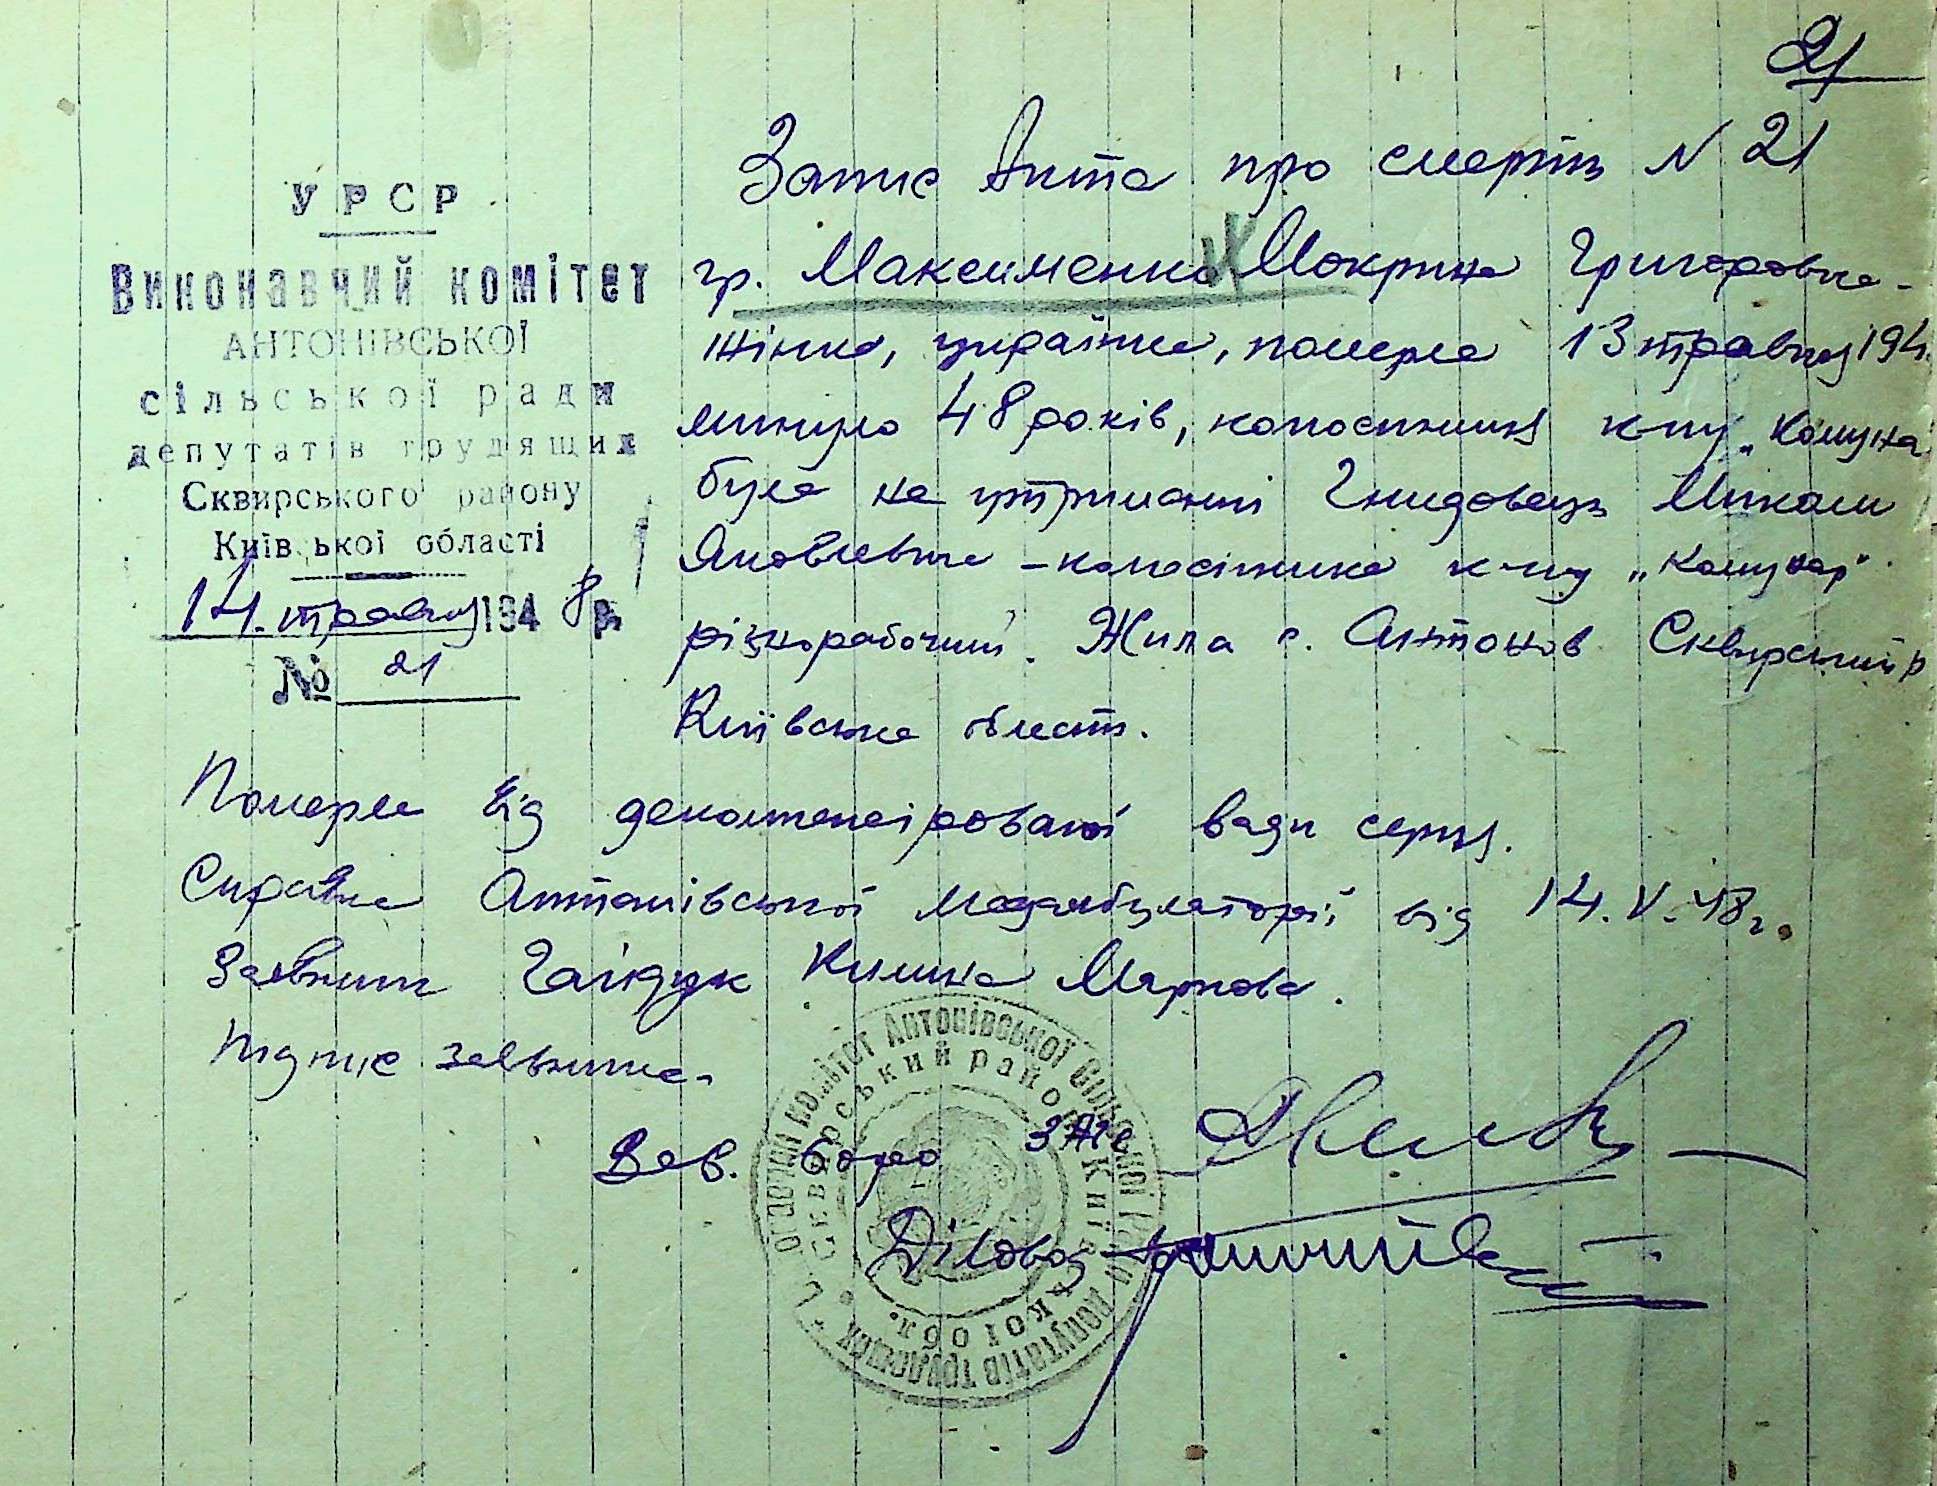 21
УРСР
Виконавчий комітет
АНТОНІВСЬКОЇ
сільської ради
депутатів трудящих
Сквирського району
Київ ької області
14. травня 1948 р.
№ 21
Запис Акта про смерть N 21
гр. Максименко Мокрина Григоровна -
жінка, українка, померла 13 травня 194
минуло 48 років, колосниця к-пу "Комуна
була на утриманні Гнидовець Миколи
Яковлевича - колгоспника к-пу "Комунар"
різнорабочий. Жила с. Антонов Сквирський р
Київська область.
Померла від декомпенсірованої вади серця.
Справка Антонівської медамбулаторії від 14.V.48 г.
Заявник Гайдук Килина Маркова.
Підпис заявника -
Зав. бюро ЗАГС
Діловод
Виконавчий комітет Антонівської Сільської Ради депутатів трудящих
Сквирський район Київської обл.